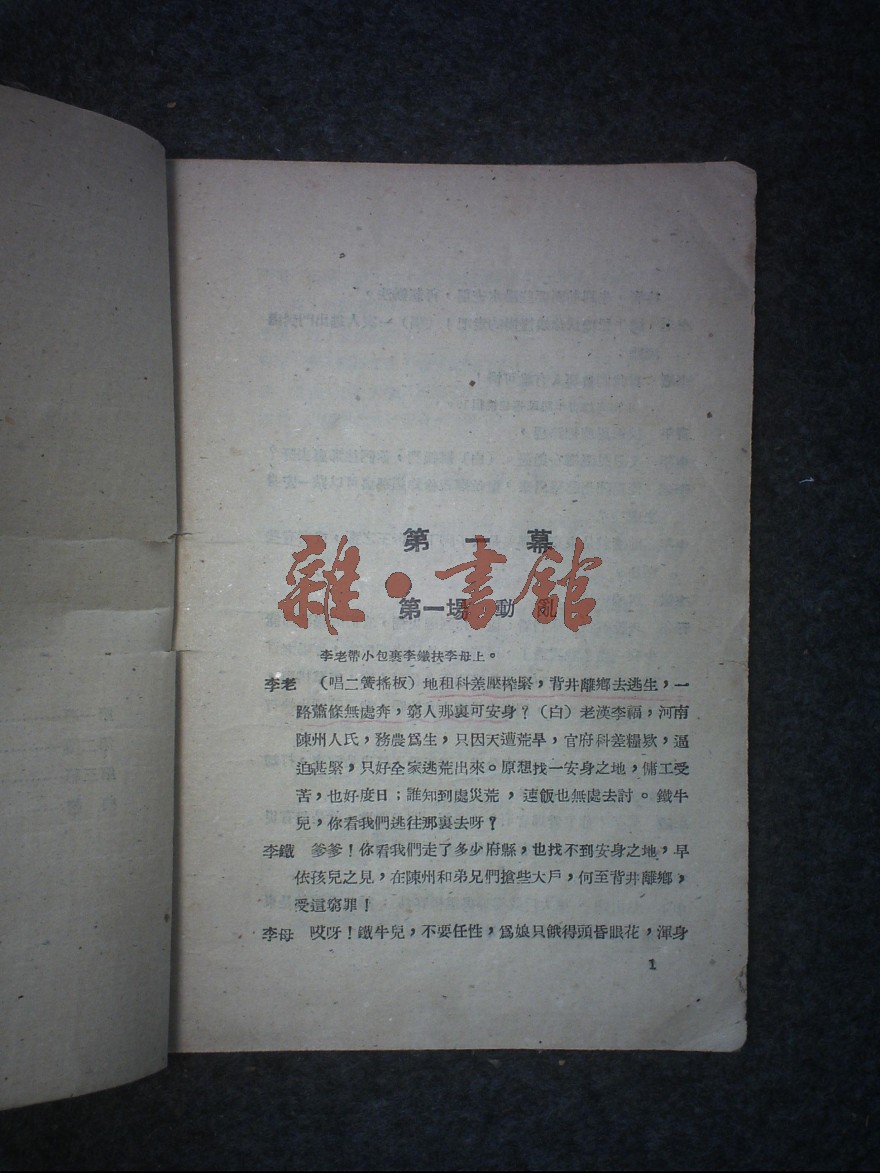 第一幕
雜·書館
第一場 動亂
李老帶小包裹李鐵扶李母上。
李老 (唱二簧搖板)地租科差壓榨緊,背井離鄉去逃生,一
路蕭條無處奔,窮人那裏可安身?(白)老漢李福,河南
陳州人氏,務農爲生,只因天遭荒旱,官府科差糧欵,逼
迫甚緊,只好全家逃荒出來。原想找一安身之地,傭工受
苦,也好度日;誰知到處災荒,連飯也無處去討。鐵牛
兒,你看我們逃往那裏去呀?
李鐵 爹爹!你看我們走了多少府縣,也找不到安身之地,早
依孩兒之見,在陳州和弟兄們搶些大戶,何至背井離鄉,
受這窮罪!
李母 哎呀!鐵牛兒,不要任性,爲娘只餓得頭昏眼花,渾身
1